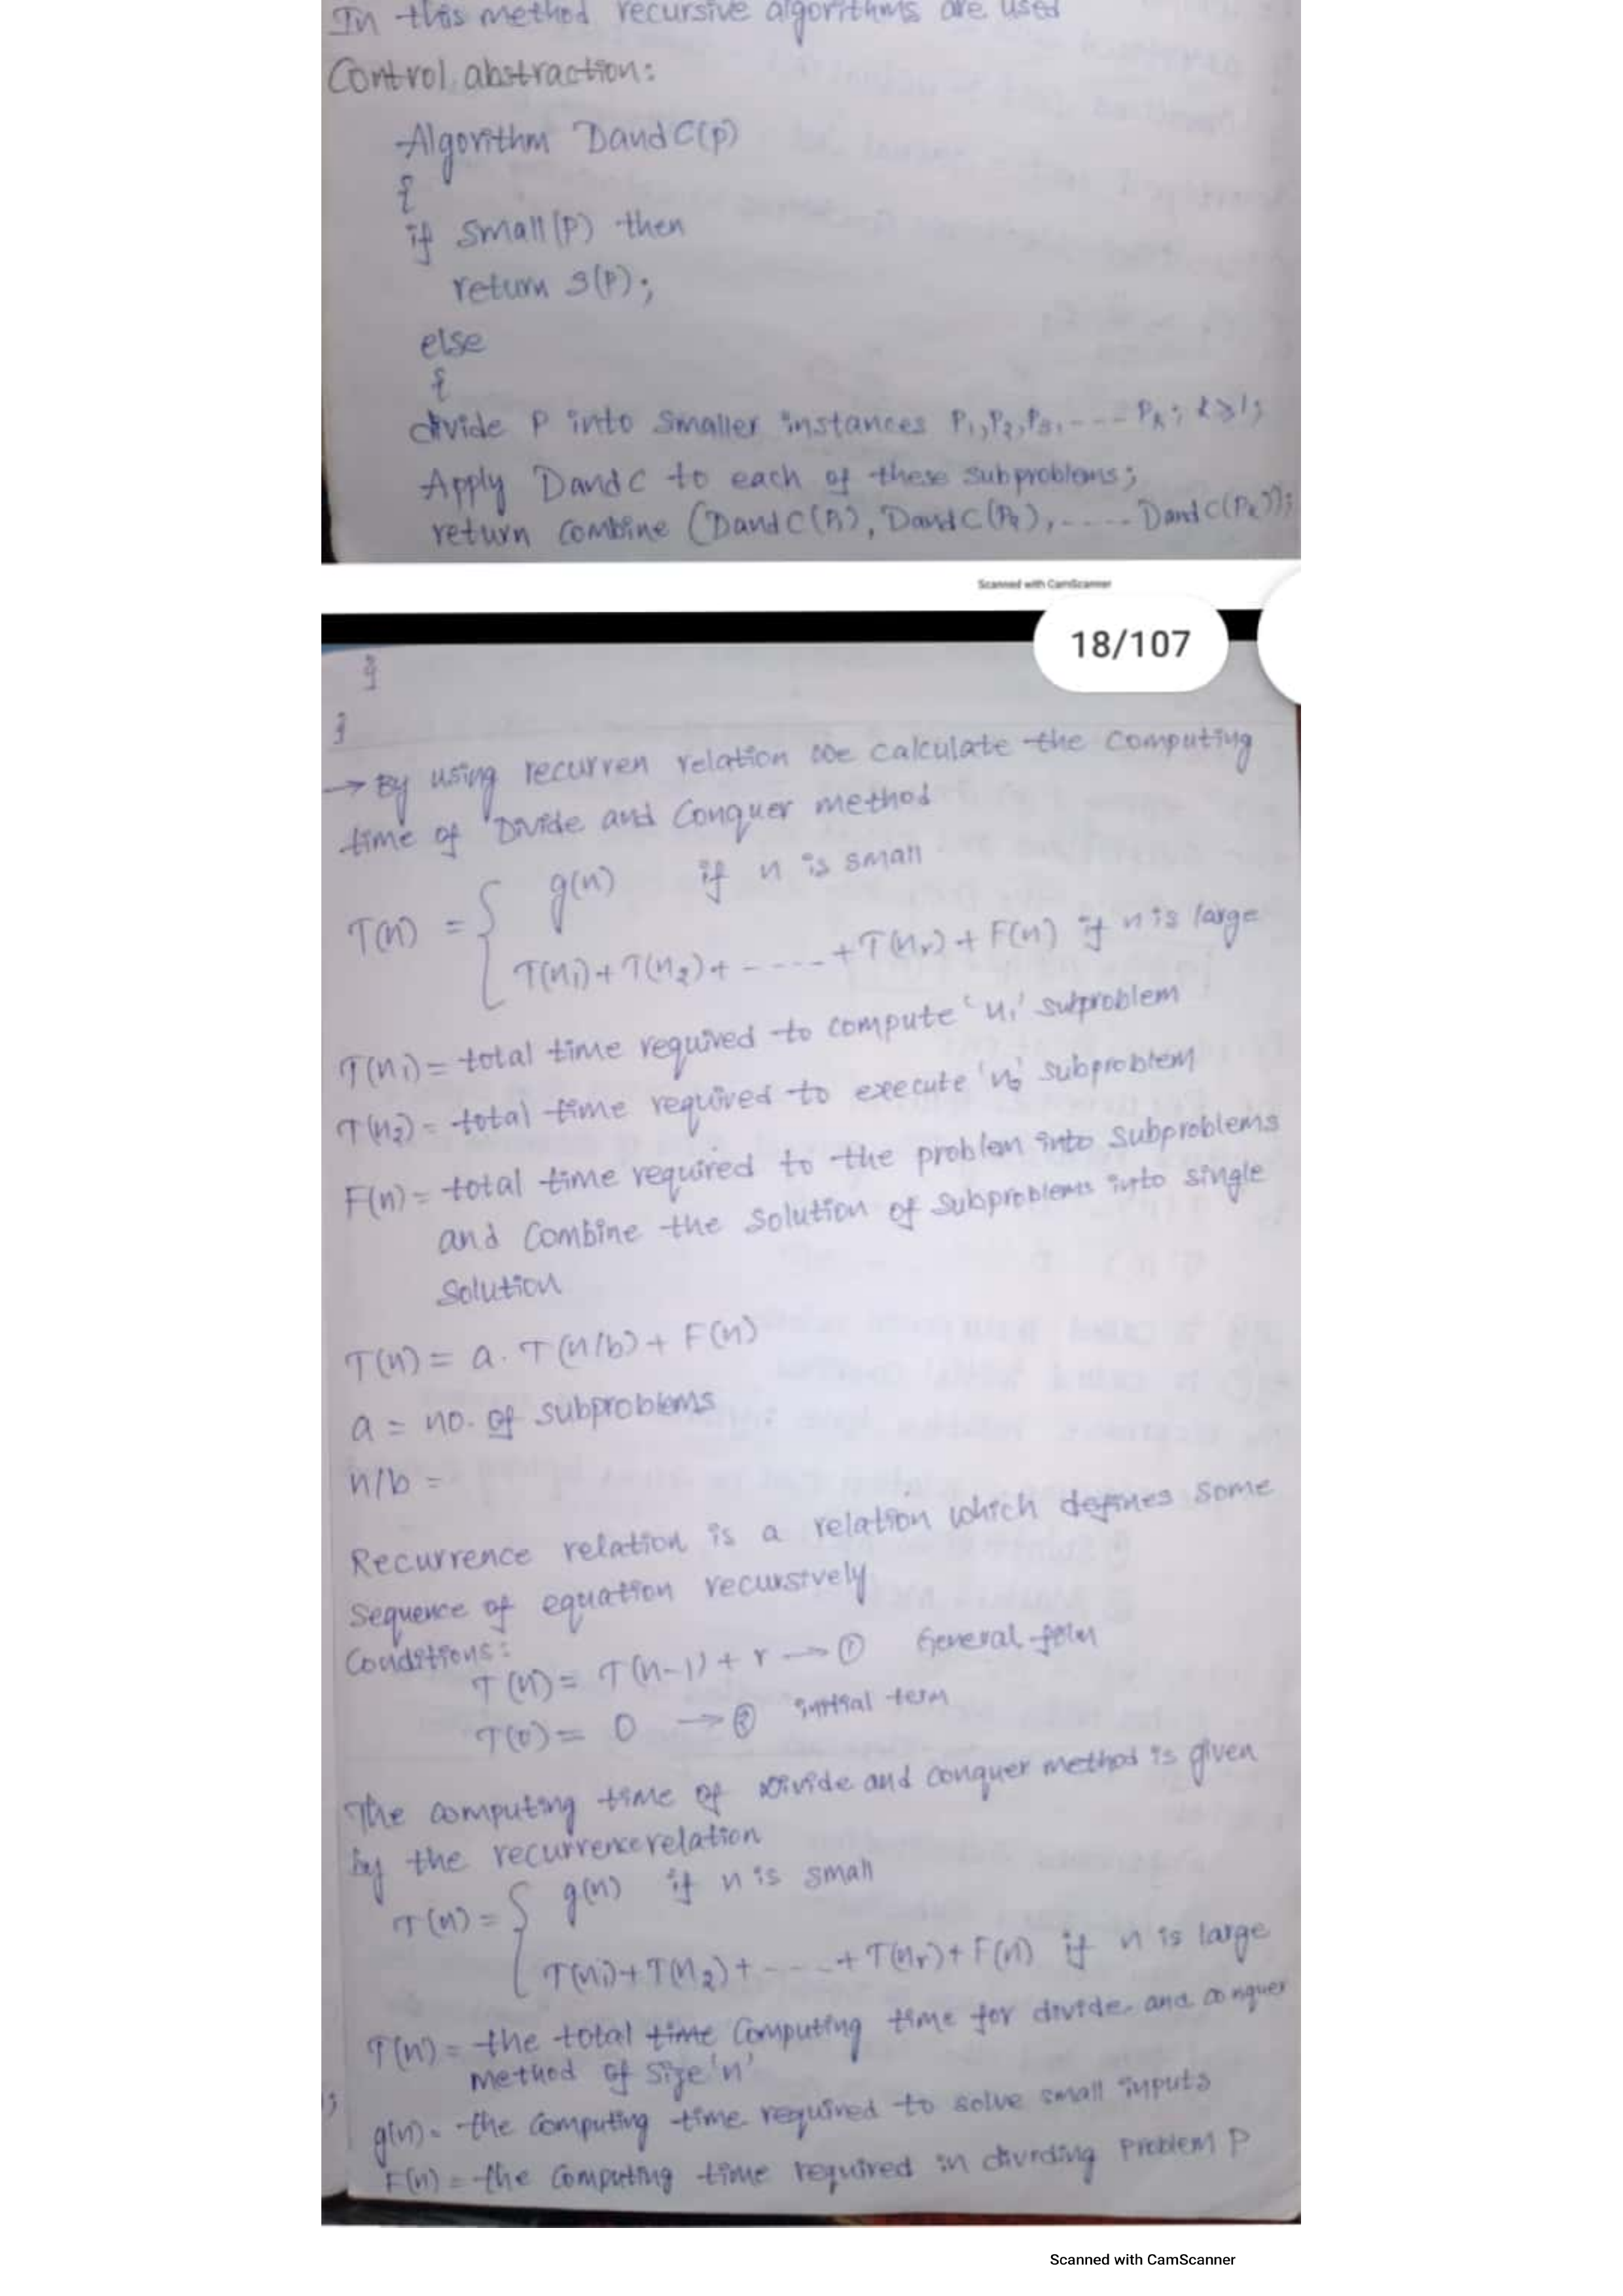 In this method recursive algorithms are used
Control abstraction:
Algorithm DandC(p)
{
if small(P) then
return S(P);
else
{
divide P into smaller instances P₁,P₂,P₃,---- Pₖ; k≥1;
Apply DandC to each of these subproblems;
return combine (DandC(P₁), DandC(P₂),..... DandC(Pₖ));
Scanned with CamScanner
18/107
}
}
→ By using recurren relation we calculate the computing
time of Divide and Conquer method
T(n) = { g(n) if n is small
T(n₁)+T(n₂)+-----+T(nᵣ)+F(n) if n is large
T(n₁)= total time required to compute 'n₁' subproblem
T(n₂)= total time required to execute 'n₂' subproblem
F(n)= total time required to the problem into subproblems
and Combine the solution of subproblems into single
solution
T(n)= a. T(n/b)+ F(n)
a = no. of subproblems
n/b =
Recurrence relation is a relation which defines some
sequence of equation recursively
Conditions:
T(n)= T(n-1)+r → ① General form
T(0)= 0 → ② initial term
The computing time of Divide and conquer method is given
by the recurrence relation
T(n)= { g(n) if n is small
T(n₁)+T(n₂)+----+T(nᵣ)+F(n) if n is large
T(n)= the total time Computing time for divide and conquer
method of size 'n'
g(n)= the computing time required to solve small inputs
F(n)= the computing time required in dividing problem P
Scanned with CamScanner